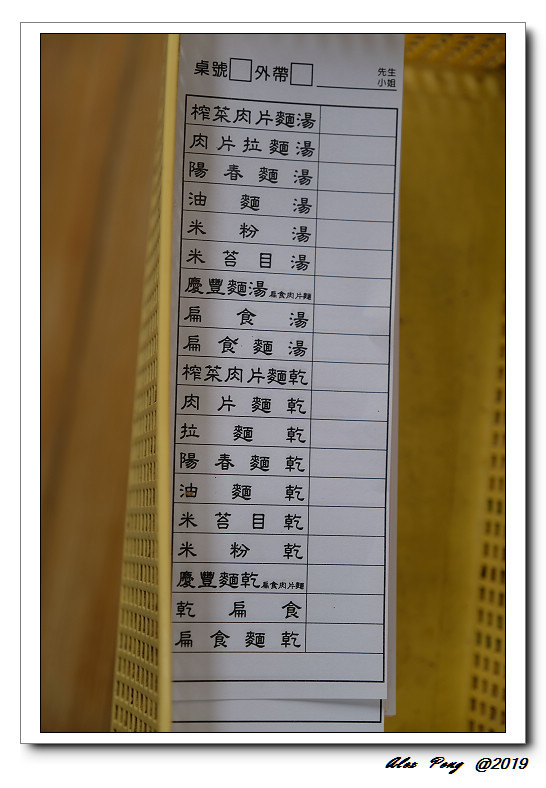 桌號 外帶 先生
小姐
榨菜肉片麵湯
肉片拉麵湯
陽春麵湯
油麵湯
米粉湯
米苔目湯
慶豐麵湯 扁食肉片麵
扁食湯
扁食麵湯
榨菜肉片麵乾
肉片麵乾
拉麵乾
陽春麵乾
油麵乾
米苔目乾
米粉乾
慶豐麵乾 扁食肉片麵
乾扁食
扁食麵乾
Alex Pong @2019